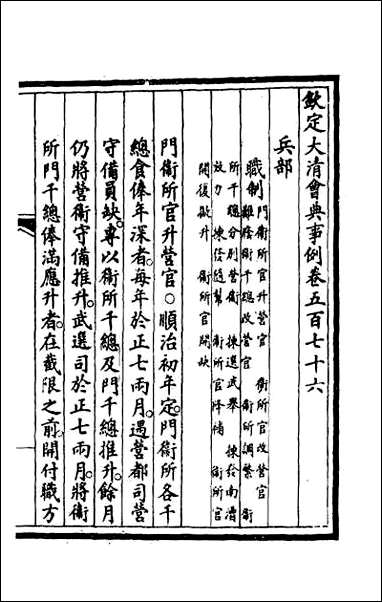 欽定大清會典事例卷五百七十六
兵部
職制
門衛所官升營官 衛所官改營官
難廕衛千總改營官 衛所調繁 衛
所千總分別營衛 揀選武舉 揀發南漕
放力 揀發隨幫 衛所官降補 衛所官
開復做升 衛所官開缺
門衛所官升營官○順治初年定門衛所各千
總食俸年深者每年於正七兩月遇營都司營
守備員缺專以衛所千總及門千總推升餘月
仍將營衛守備推升武選司於正七兩月將衛
所門千總俸滿應升者在截限之前開付職方